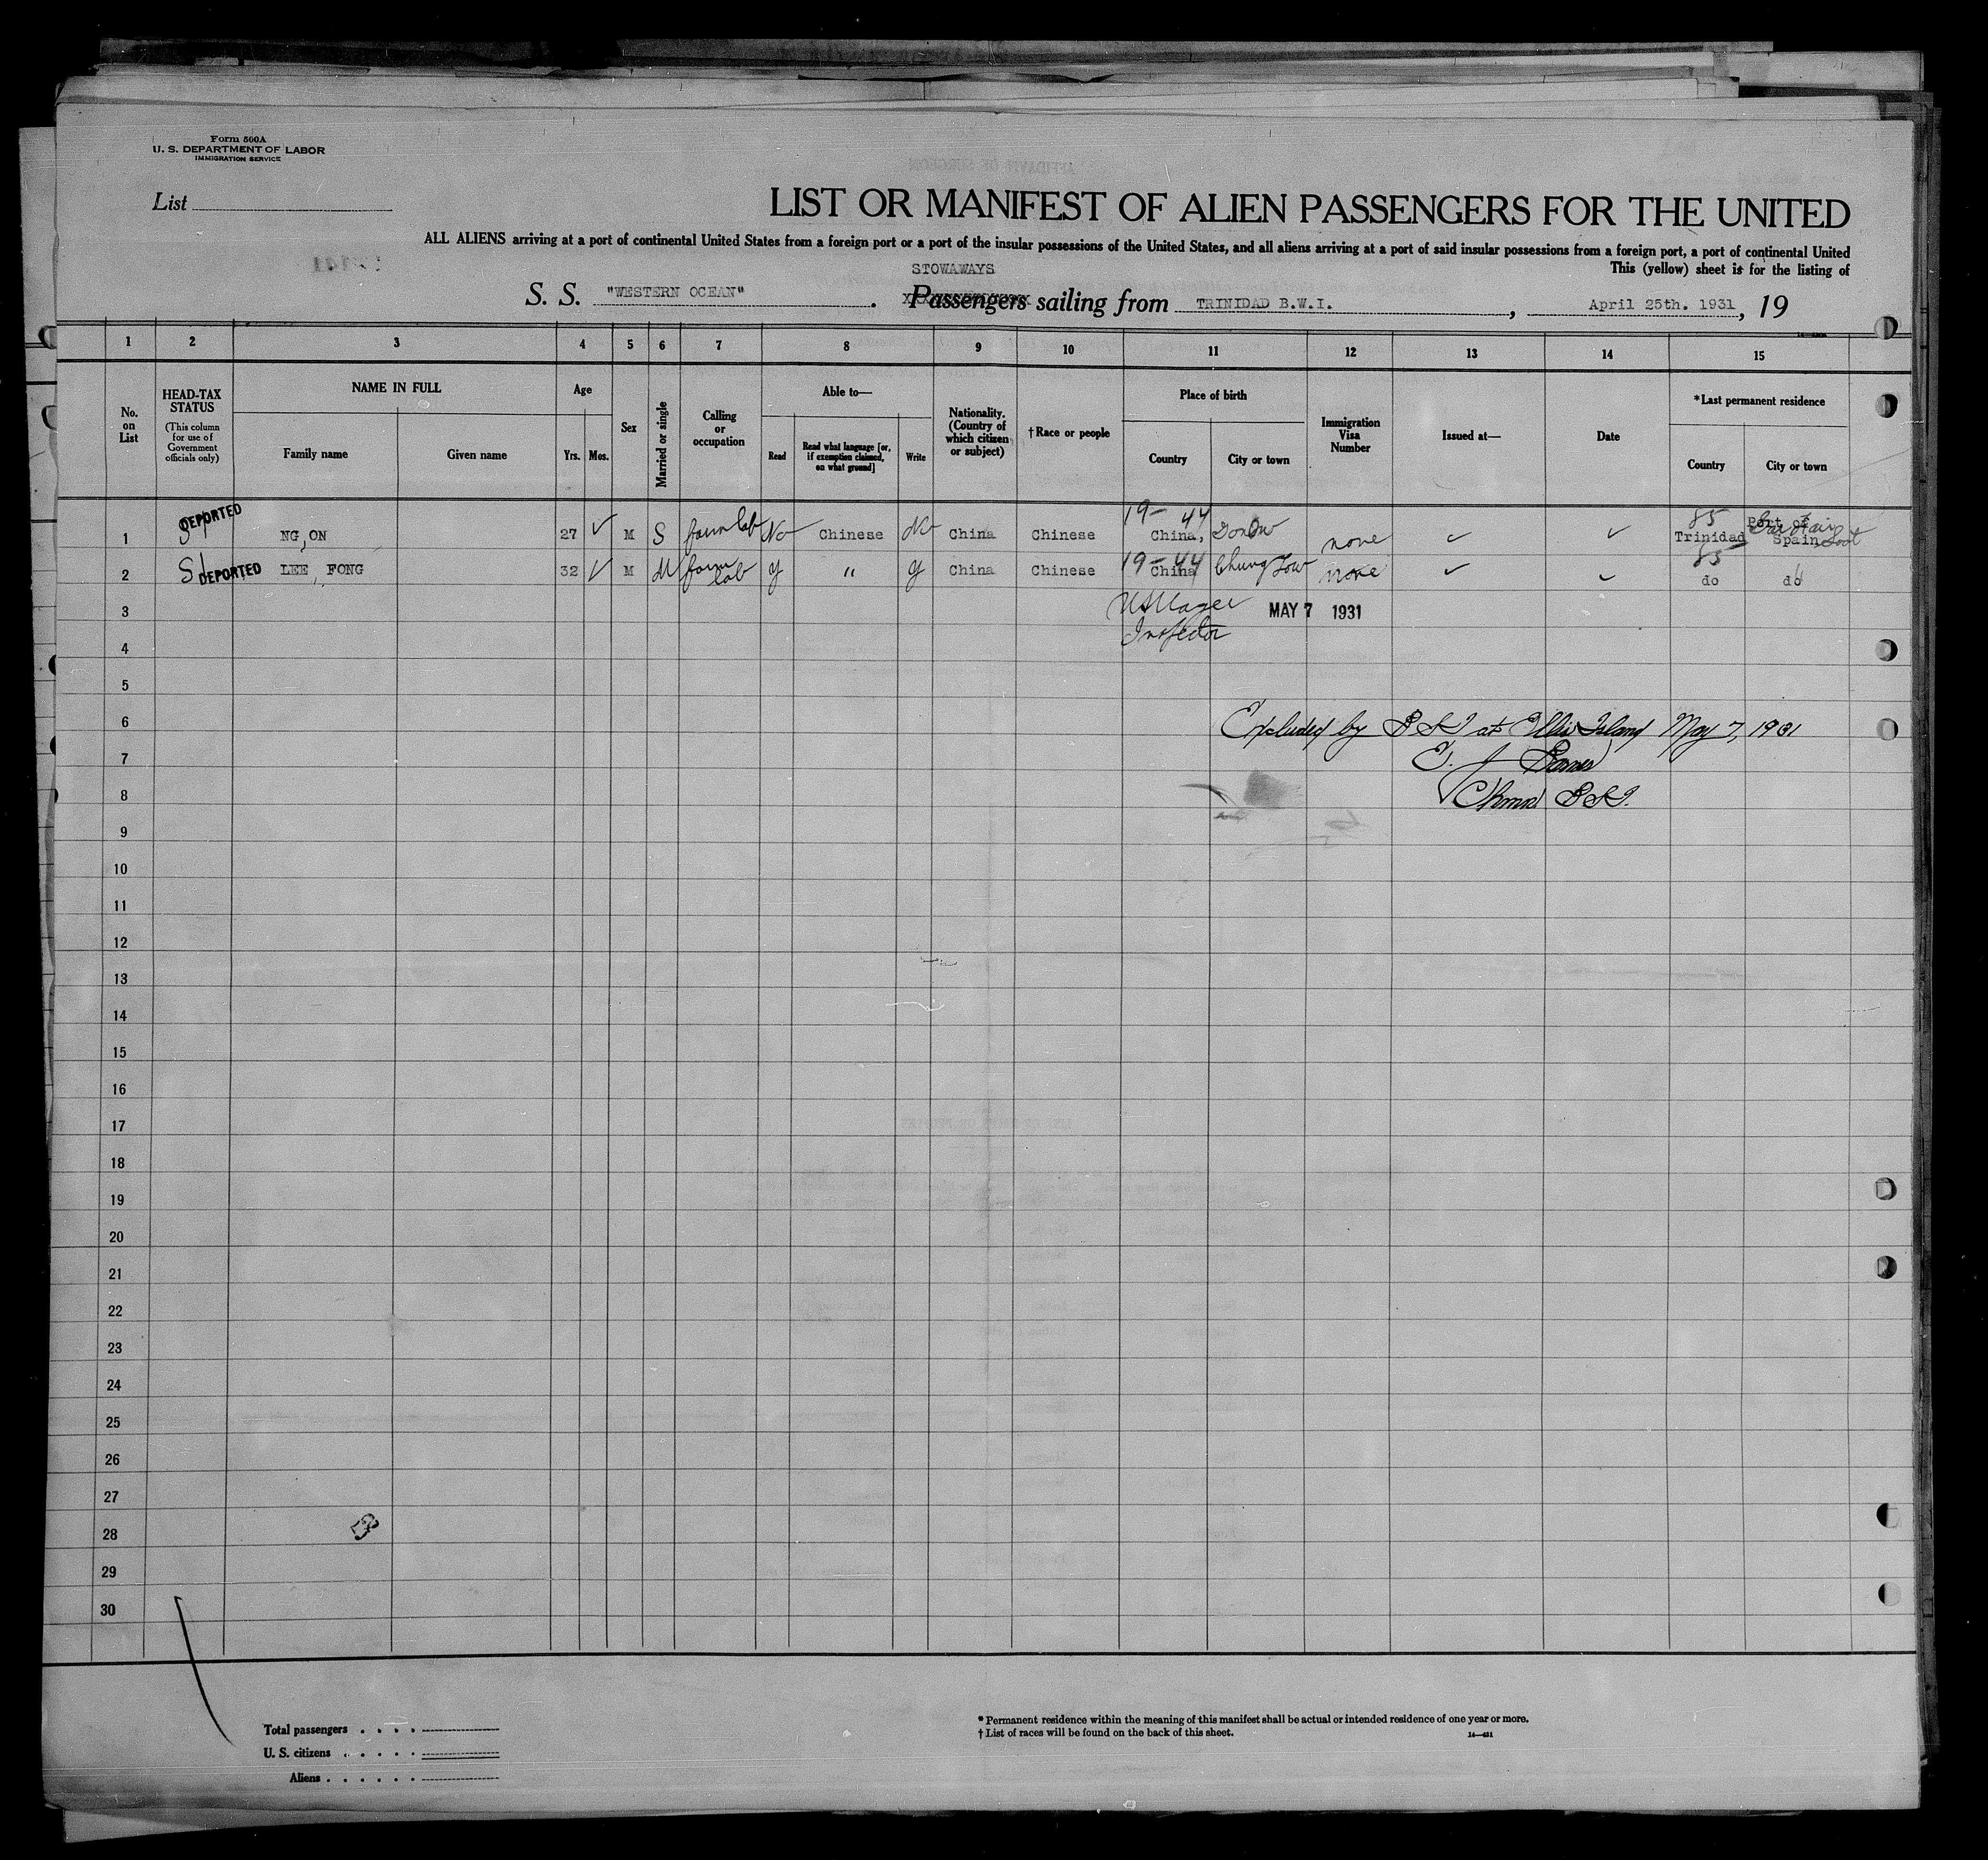 Form 500A
U. S. DEPARTMENT OF LABOR
IMMIGRATION SERVICE
List
LIST OR MANIFEST OF ALIEN PASSENGERS FOR THE UNITED
ALL ALIENS arriving at a port of continental United States from a foreign port or a port of the insular possessions of the United States, and all aliens arriving at a port of said insular possessions from a foreign port, a port of continental United
This (yellow) sheet is for the listing of
STOWAWAYS
S. S. "WESTERN OCEAN" . Passengers sailing from TRINIDAD B.W.I. , April 25th. 1931 , 19
1 2 3 4 5 6 7 8 9 10 11 12 13 14 15
No. on List
HEAD-TAX STATUS
(This column for use of Government officials only)
NAME IN FULL
Family name Given name
Age
Yrs. Mos.
Sex
Married or single
Calling or occupation
Able to—
Read
Read what language [or, if exemption claimed, on what ground]
Write
Nationality. (Country of which citizen or subject)
†Race or people
Place of birth
Country City or town
Immigration Visa Number
Issued at—
Date
*Last permanent residence
Country City or town
1 DEPORTED NG, ON 27 ✓ M S farm lab No Chinese No China Chinese 19- 44 China, none ✓ ✓ 85 Trinidad Port of Spain
2 DEPORTED LEE, FONG 32 ✓ M M farm lab y " y China Chinese 19-44 China Chung Low none ✓ ✓ 85 do do
3 MAY 7 1931
4 Inspector
5
6 Excluded by BSI at Ellis Island May 7, 1931
7
8 Chmn BSI.
9
10
11
12
13
14
15
16
17
18
19
20
21
22
23
24
25
26
27
28
29
30
Total passengers . . . .
U. S. citizens . . . . .
Aliens . . . . . .
* Permanent residence within the meaning of this manifest shall be actual or intended residence of one year or more.
† List of races will be found on the back of this sheet.
14—431